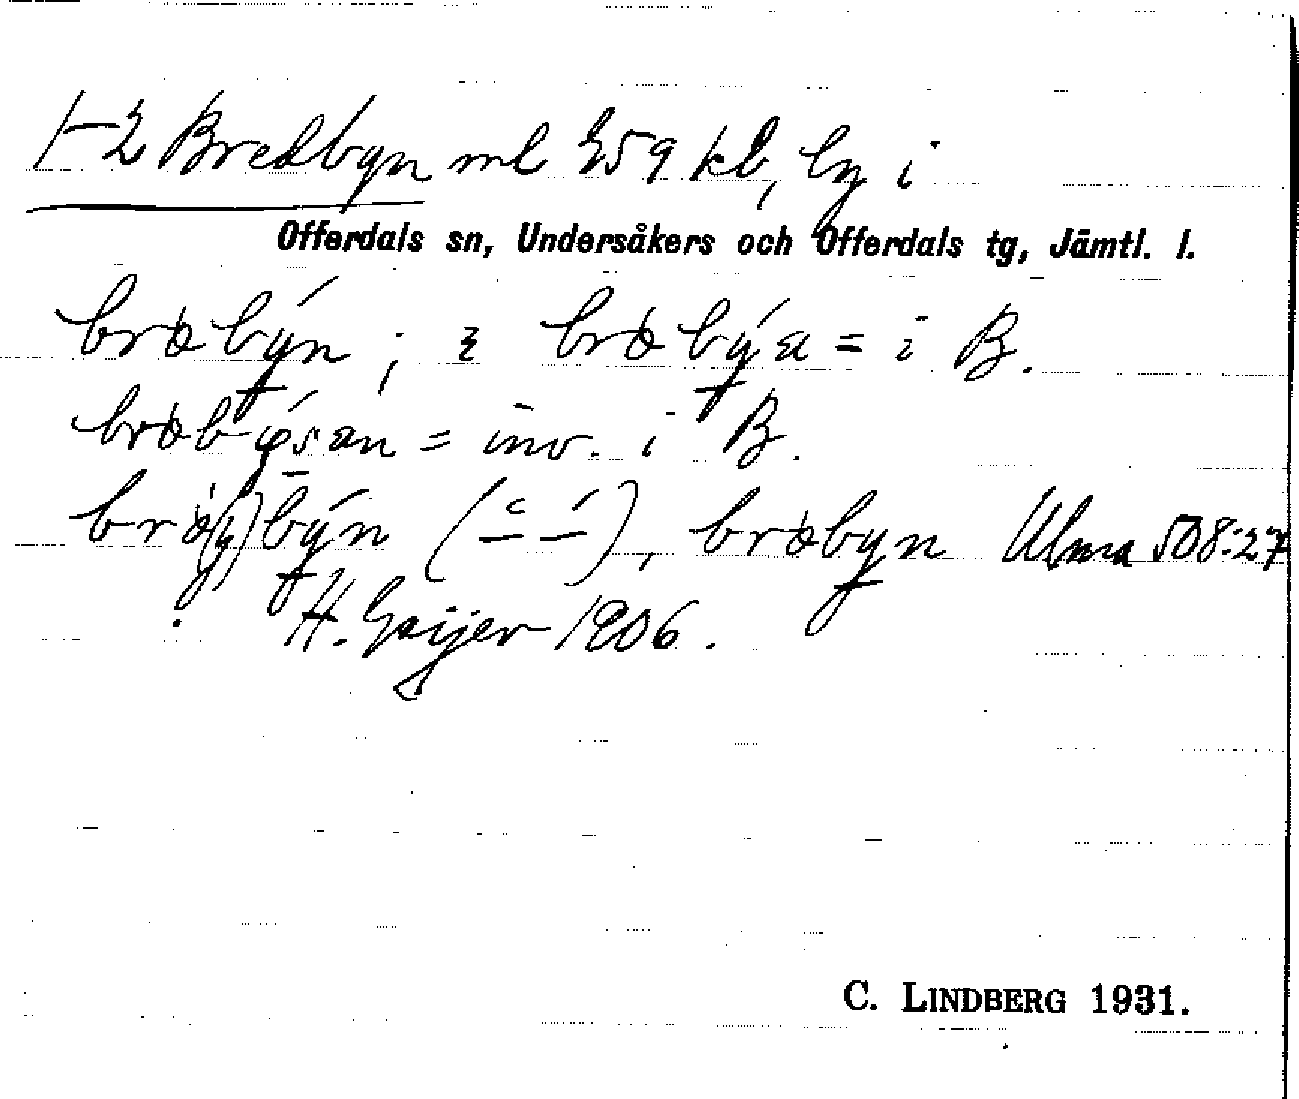 1–2 Bredbyn ml 259 kb, by i
Offerdals sn, Undersåkers och Offerdals tg, Jämtl. l.
bræbýn ; i bræbýn = i B.
bræbýsan = inv. i B.
bræ(y)býn ( ), bræbyn Ulma 508:27
H. Geijer 1906.
C. LINDBERG 1931.